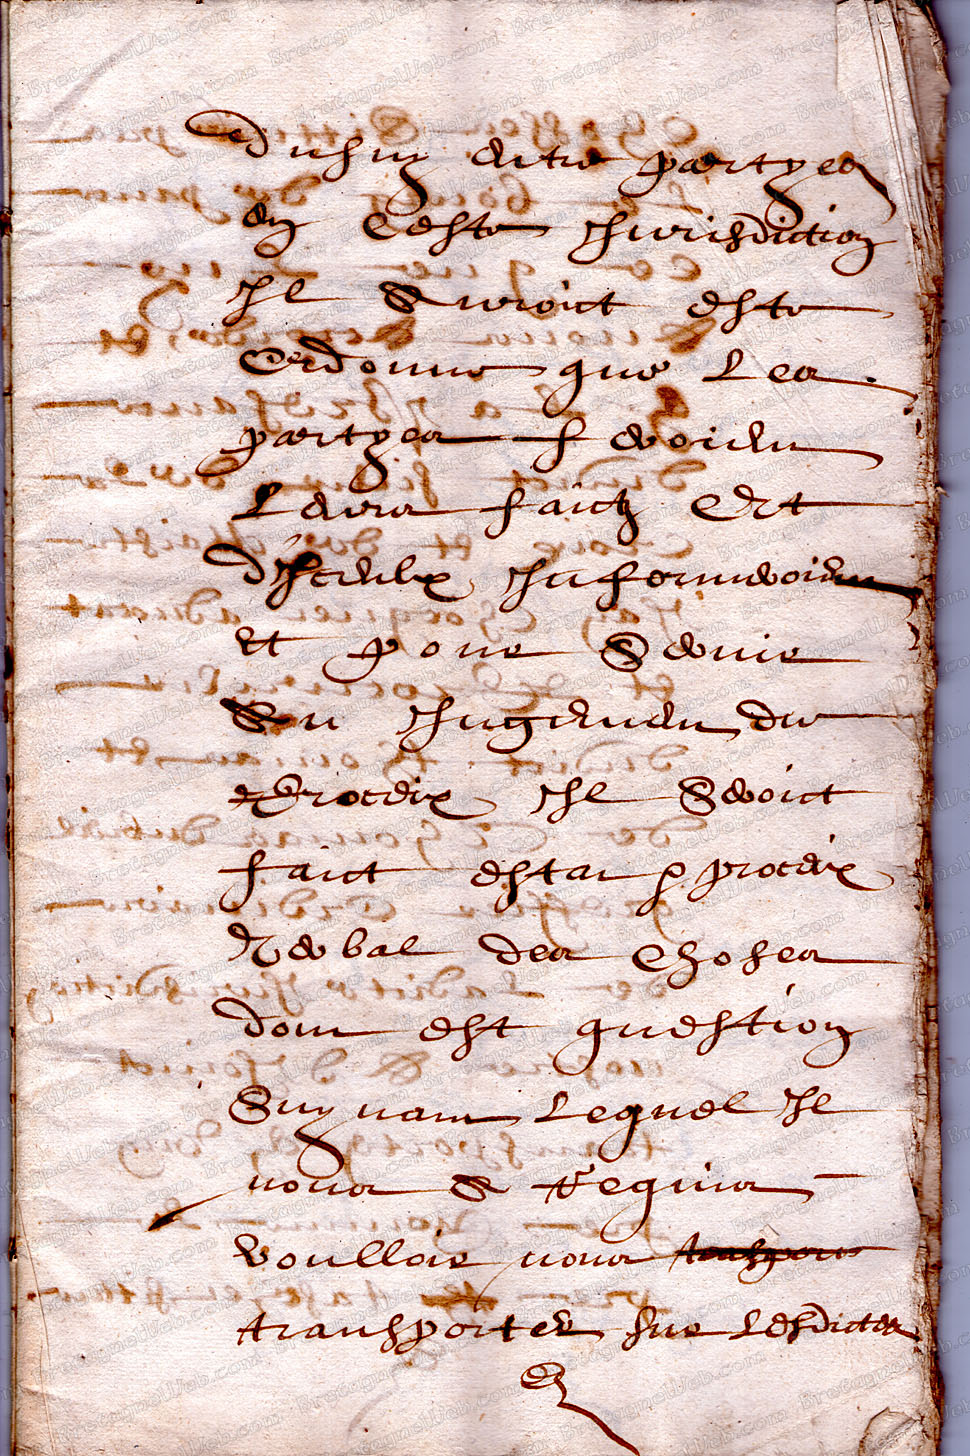 d'iceluy autre partyes
en ceste Jurisdiction
Il auroict esté
ordonné que les
partyes feroient
leurs faictz
Informeroient
et pour servir
au Jugement du
proceix Il seroict
faict estat p proceix
verbal des choses
dont est question
suyvant lequel Il
nous a requis
voulloir nous transporter
transporter sur lesdictes